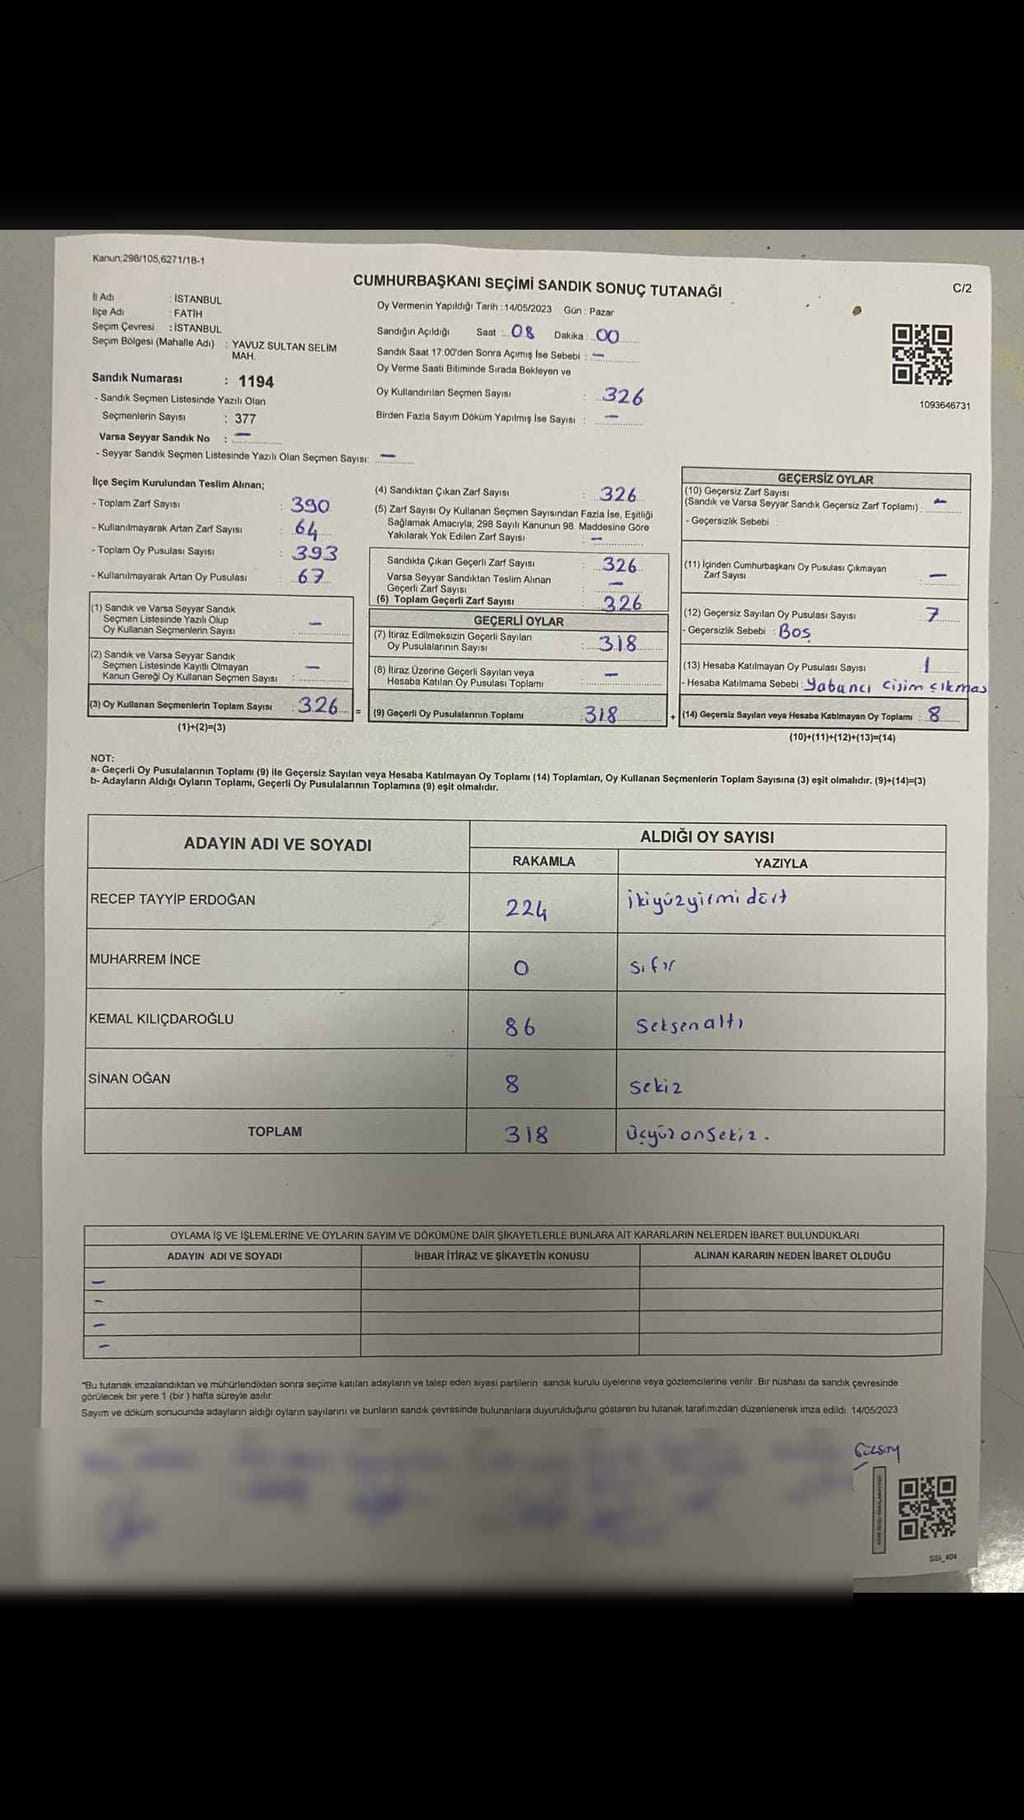 Kanun,298/105,6271/18-1
CUMHURBAŞKANI SEÇİMİ SANDIK SONUÇ TUTANAĞI
C/2
İl Adı : İSTANBUL
İlçe Adı : FATİH
Seçim Çevresi : İSTANBUL
Seçim Bölgesi (Mahalle Adı) : YAVUZ SULTAN SELİM
MAH.
Sandık Numarası : 1194
- Sandık Seçmen Listesinde Yazılı Olan
Seçmenlerin Sayısı : 377
Varsa Seyyar Sandık No : –
- Seyyar Sandık Seçmen Listesinde Yazılı Olan Seçmen Sayısı: –
Oy Vermenin Yapıldığı Tarih : 14/05/2023 Gün : Pazar
Sandığın Açıldığı Saat : 08 Dakika : 00
Sandık Saat 17:00'den Sonra Açımış İse Sebebi : –
Oy Verme Saati Bitiminde Sırada Bekleyen ve
Oy Kullandırılan Seçmen Sayısı : 326
Birden Fazla Sayım Döküm Yapılmış İse Sayısı : –
1093646731
İlçe Seçim Kurulundan Teslim Alınan;
- Toplam Zarf Sayısı : 390
- Kullanılmayarak Artan Zarf Sayısı : 64
- Toplam Oy Pusulası Sayısı : 393
- Kullanılmayarak Artan Oy Pusulası : 67
(1) Sandık ve Varsa Seyyar Sandık
Seçmen Listesinde Yazılı Olup
Oy Kullanan Seçmenlerin Sayısı : –
(2) Sandık ve Varsa Seyyar Sandık
Seçmen Listesinde Kayıtlı Olmayan
Kanun Gereği Oy Kullanan Seçmen Sayısı : –
(3) Oy Kullanan Seçmenlerin Toplam Sayısı : 326 =
(1)+(2)=(3)
(4) Sandıktan Çıkan Zarf Sayısı : 326
(5) Zarf Sayısı Oy Kullanan Seçmen Sayısından Fazla İse, Eşitliği
Sağlamak Amacıyla, 298 Sayılı Kanunun 98. Maddesine Göre
Yakılarak Yok Edilen Zarf Sayısı : –
Sandıkta Çıkan Geçerli Zarf Sayısı : 326
Varsa Seyyar Sandıktan Teslim Alınan
Geçerli Zarf Sayısı : –
(6) Toplam Geçerli Zarf Sayısı : 326
GEÇERLİ OYLAR
(7) İtiraz Edilmeksizin Geçerli Sayılan
Oy Pusulalarının Sayısı : 318
(8) İtiraz Üzerine Geçerli Sayılan veya
Hesaba Katılan Oy Pusulası Toplamı : –
(9) Geçerli Oy Pusulalarının Toplamı : 318 +
GEÇERSİZ OYLAR
(10) Geçersiz Zarf Sayısı
(Sandık ve Varsa Seyyar Sandık Geçersiz Zarf Toplamı) : –
- Geçersizlik Sebebi :
(11) İçinden Cumhurbaşkanı Oy Pusulası Çıkmayan
Zarf Sayısı : –
(12) Geçersiz Sayılan Oy Pusulası Sayısı : 7
- Geçersizlik Sebebi : Boş
(13) Hesaba Katılmayan Oy Pusulası Sayısı : 1
- Hesaba Katılmama Sebebi : Yabancı cisim çıkması
(14) Geçersiz Sayılan veya Hesaba Katılmayan Oy Toplamı : 8
(10)+(11)+(12)+(13)=(14)
NOT:
a- Geçerli Oy Pusulalarının Toplamı (9) ile Geçersiz Sayılan veya Hesaba Katılmayan Oy Toplamı (14) Toplamları, Oy Kullanan Seçmenlerin Toplam Sayısına (3) eşit olmalıdır. (9)+(14)=(3)
b- Adayların Aldığı Oyların Toplamı, Geçerli Oy Pusulalarının Toplamına (9) eşit olmalıdır.
ADAYIN ADI VE SOYADI
ALDIĞI OY SAYISI
RAKAMLA YAZIYLA
RECEP TAYYİP ERDOĞAN 224 ikiyüzyirmi dört
MUHARREM İNCE 0 Sıfır
KEMAL KILIÇDAROĞLU 86 Seksenaltı
SİNAN OĞAN 8 Sekiz
TOPLAM 318 Üçyüzonsekiz.
OYLAMA İŞ VE İŞLEMLERİNE VE OYLARIN SAYIM VE DÖKÜMÜNE DAİR ŞİKAYETLERLE BUNLARA AİT KARARLARIN NELERDEN İBARET BULUNDUKLARI
ADAYIN ADI VE SOYADI İHBAR İTİRAZ VE ŞİKAYETİN KONUSU ALINAN KARARIN NEDEN İBARET OLDUĞU
–
–
–
–
"Bu tutanak imzalandıktan ve mühürlendikten sonra seçime katılan adayların ve talep eden siyasi partilerin sandık kurulu üyelerine veya gözlemcilerine verilir. Bir nüshası da sandık çevresinde
görülecek bir yere 1 (bir ) hafta süreyle asılır
Sayım ve döküm sonucunda adayların aldığı oyların sayılarını ve bunların sandık çevresinde bulunanlara duyurulduğunu gösteren bu tutanak tarafımızdan düzenlenerek imza edildi. 14/05/2023
SSI_404